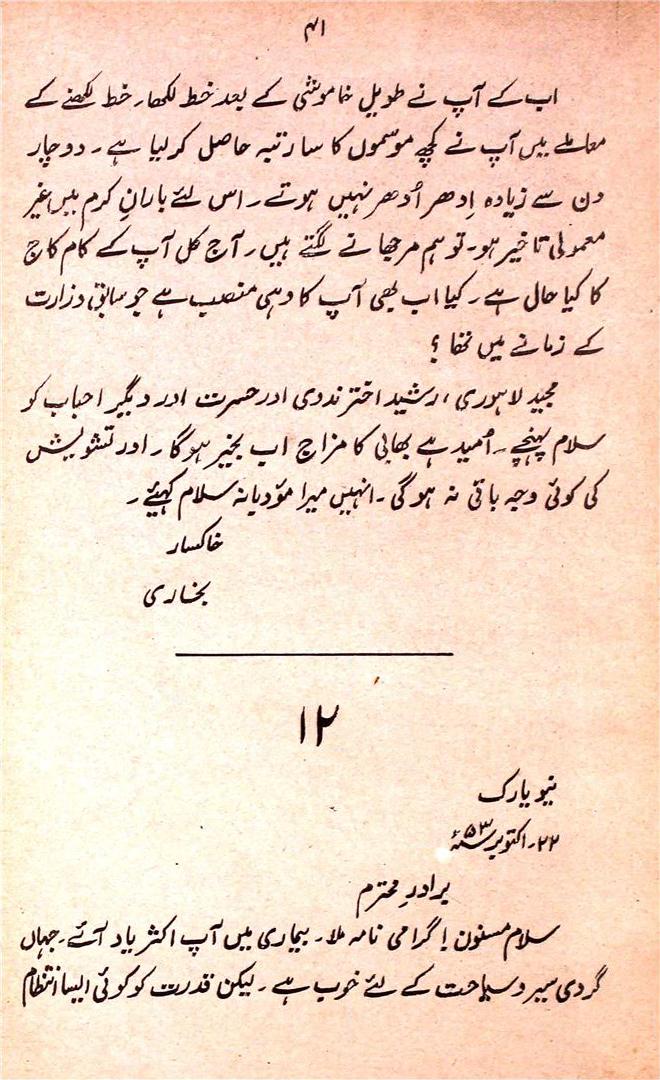 ۴۱
اب کے آپ نے طویل خاموشی کے بعد خط لکھا۔ خط لکھنے کے
معاملے میں آپ نے کچھ موسموں کا سا رتبہ حاصل کرلیا ہے۔ دوچار
دن سے زیادہ اِدھر اُدھر نہیں ہوتے۔ اس لئے بارانِ کرم میں غیر
معمولی تاخیر ہو۔ تو ہم مرجھانے لگتے ہیں۔ آج کل آپ کے کام کاج
کا کیا حال ہے۔ کیا اب بھی آپ کا وہی منصب ہے جو سابق وزارت
کے زمانے میں تھا ؟
مجید لاہوری، رشید اختر ندوی اور حسرت اور دیگر احباب کو
سلام پہنچے۔ اُمید ہے بھابی کا مزاج اب بخیر ہوگا۔ اور تشویش
کی کوئی وجہ باقی نہ ہوگی۔ انہیں میرا مؤدبانہ سلام کہیئے۔
خاکسار
بخاری
۱۲
نیویارک
۲۲۔اکتوبر ۵۳ء
برادرِ محترم
سلام مسنون! گرامی نامہ ملا۔ بیماری میں آپ اکثر یاد آئے۔ جہاں
گردی سیر و سیاحت کے لئے خوب ہے۔ لیکن قدرت کو کوئی ایسا انتظام